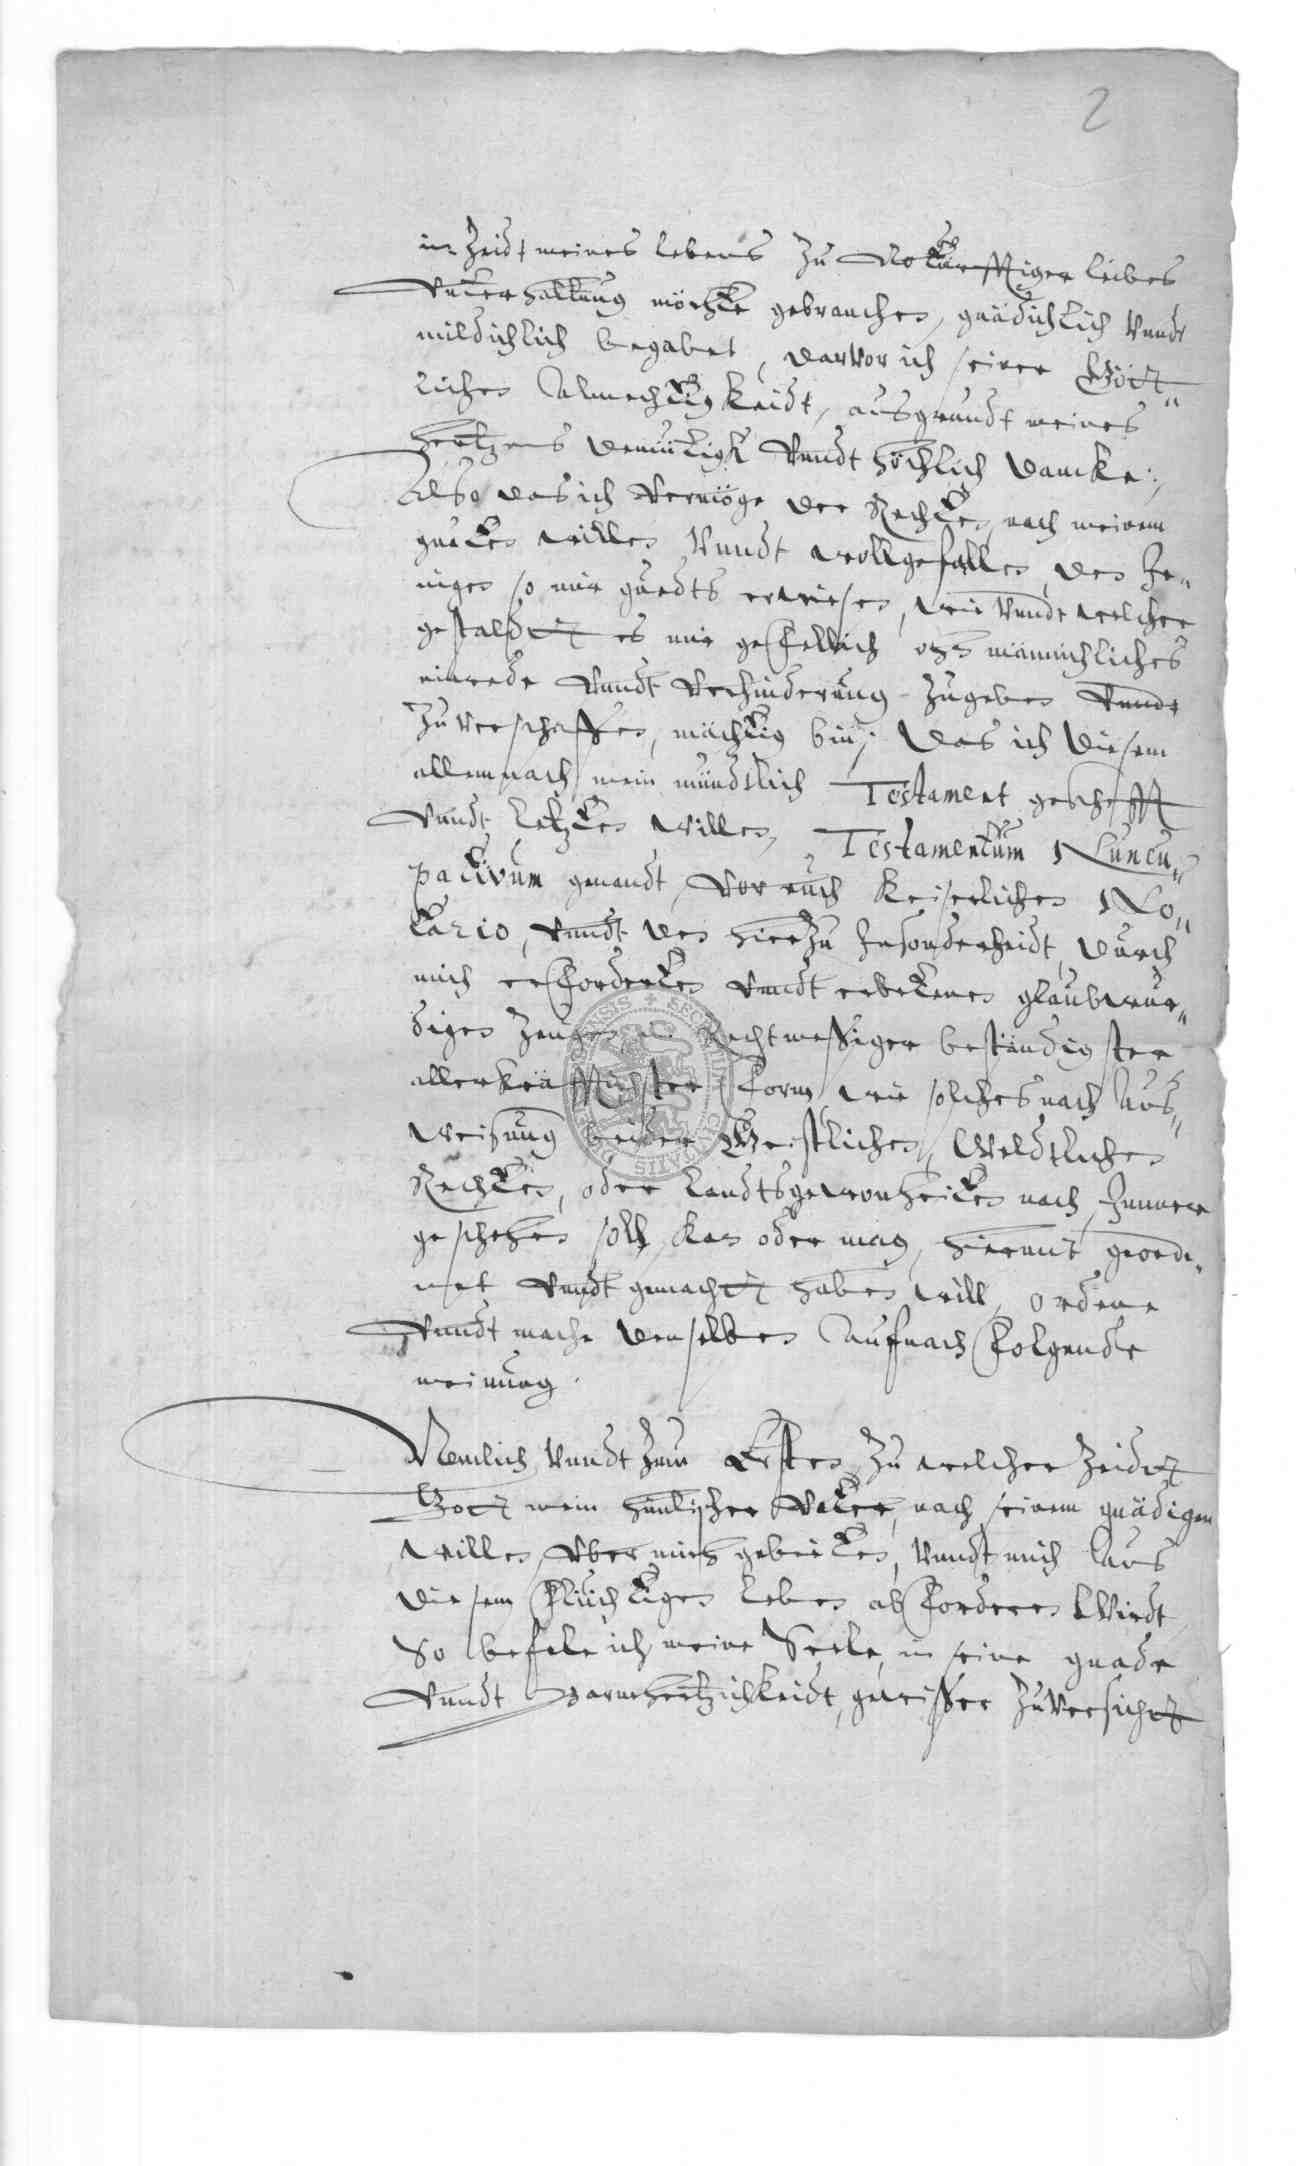 2
in Zeidt meines lebens zu Notürfftiger leibes
Vnterhalltung möchte gebrauchen, gnädichlich Vundt
mildichlich begabet, darvor ich seiner Gött„
lichen Almechtigkeidt, aus grundt meines
hertzens demütigk Vundt höchlich dancke:,
Also das ich Vermöge der Rechten, nach meinem
gueten willen Vundt wollgefallen, den Je„
nigen so mir guedts erwiesen, wie Vundt welcher
gestaldtt es mir gefellich ohn männichliches
einrede Vundt Verhinderung zugeben Vundt
zuverschaffen, mächtig bin; Das ich diesem
allem nach mein mündtlich Testament geschefft
Vundt letzten willen, Testamentum Nuncu„
pativum genandt, Vor euch Keiserlichen No„
tario, Vundt den hierzu Insonderheidt, durch
mich erforderten Vundt erbetenen glaubwür„
digen Zeugen in Rechtmessiger bestendigster
allerkräfftichster form, wie solches nach Aus„
weisung beider Geistlichen, Weldtlichen
Rechten, oder landtsgewonheiten nach, Immer
geschehen soll, kan oder mag, hiermit geord„
net Vundt gemachtt haben will, ordene
Vundt mache denselben Auf nachfolgende
meinung.
Nemlich Vundt zum Ersten, zu welcher Zeidtt
Gott mein himlischer Vater, nach seinem gnädigen
willen, Vber mich gebieten, Vundt mich Aus
diesem flüchtigen leben abforderen Wirdt
So befele ich meine Seele, in seine gnade
Vundt Barmhertzichkeidt, gewisser zuversichtt
SECRETUM CIVITATIS